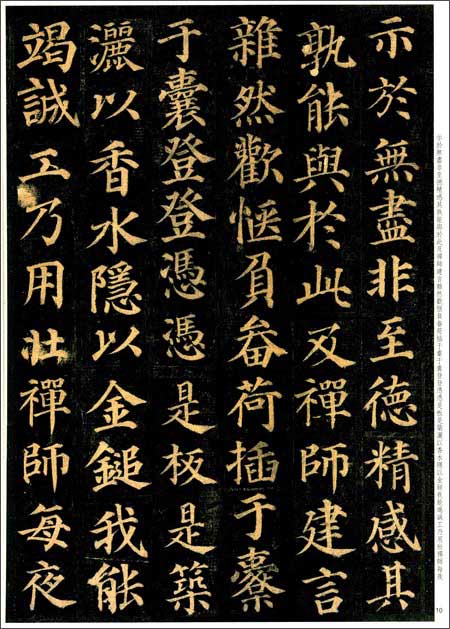 示於無盡非至德精感其
孰能與於此及禪師建言
雜然歡愜負畚荷插于橐
于囊登登憑憑是板是築
灑以香水隱以金鎚我能
竭誠工乃用壯禪師每夜
示於無盡非至德精感其孰能與於此及禪師建言雜然歡愜負畚荷插于橐于囊登登憑憑是板是築灑以香水隱以金鎚我能竭誠工乃用壯禪師每夜
10